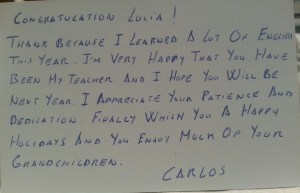 CONGRATULATION LUCIA!
THANK BECAUSE I LEARNED A LOT OF ENGLISH
THIS YEAR. I'M VERY HAPPY THAT YOU HAVE
BEEN MY TEACHER AND I HOPE YOU WILL BE
NEXT YEAR. I APPRECIATE YOUR PATIENCE AND
DEDICATION. FINALLY WHICH YOU A HAPPY
HOLIDAYS AND YOU ENJOY MUCH OF YOUR
GRANDCHILDREN.
CARLOS